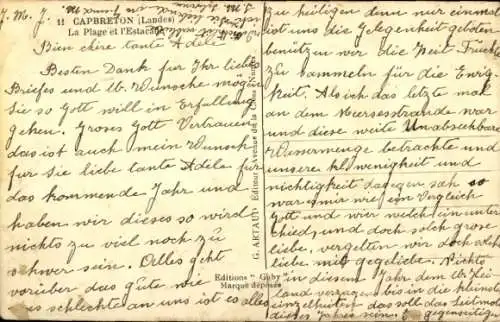 J. M. J.
11 CAPBRETON (Landes)
La Plage et l'Estacade
Bien chère tante Adela
Besten Dank für Ihr lieb
Briefs und lb. Wünsche mögen
Sie so Gott will in Erfüllung
gehen. Groses Gott Vertrauen
das ist auch mein Wunsch
für Sie liebe tante Adela für
das kommende Jahr und
haben wir dieses so wird
nichts zu viel noch zu
schwer sein. Alles geht
vorüber das gute wie
s schlechte an uns ist es alles
G. ARTAUD Editeur Avenue de la
Editions "Gaby"
Marque déposée
zu heiligen denn nur einmal
ist uns die Gelegenheit geboten
benützen wir die Zeit Früchte
zu sammeln für die Ewig
keit. Als ich das letzte mal
an dem Meeresstrande war
und diese weite Unabsehbar
Wassermenge betrachte und
unsere kleinigkeit und
nichtigkeit dagegen sah so
war mir wie ein Vergleich
Gott und wir welch ein unter
schied, und doch solch grose
liebe, vergelten wir doch solche
liebe mit gegeliebe. Nichts
in diesem Jahr dem lb. Hei
land versagen bis in die kleinste
einzelheiten das soll das Leitmotiv
dieses Jahres sein. gegenseitigen